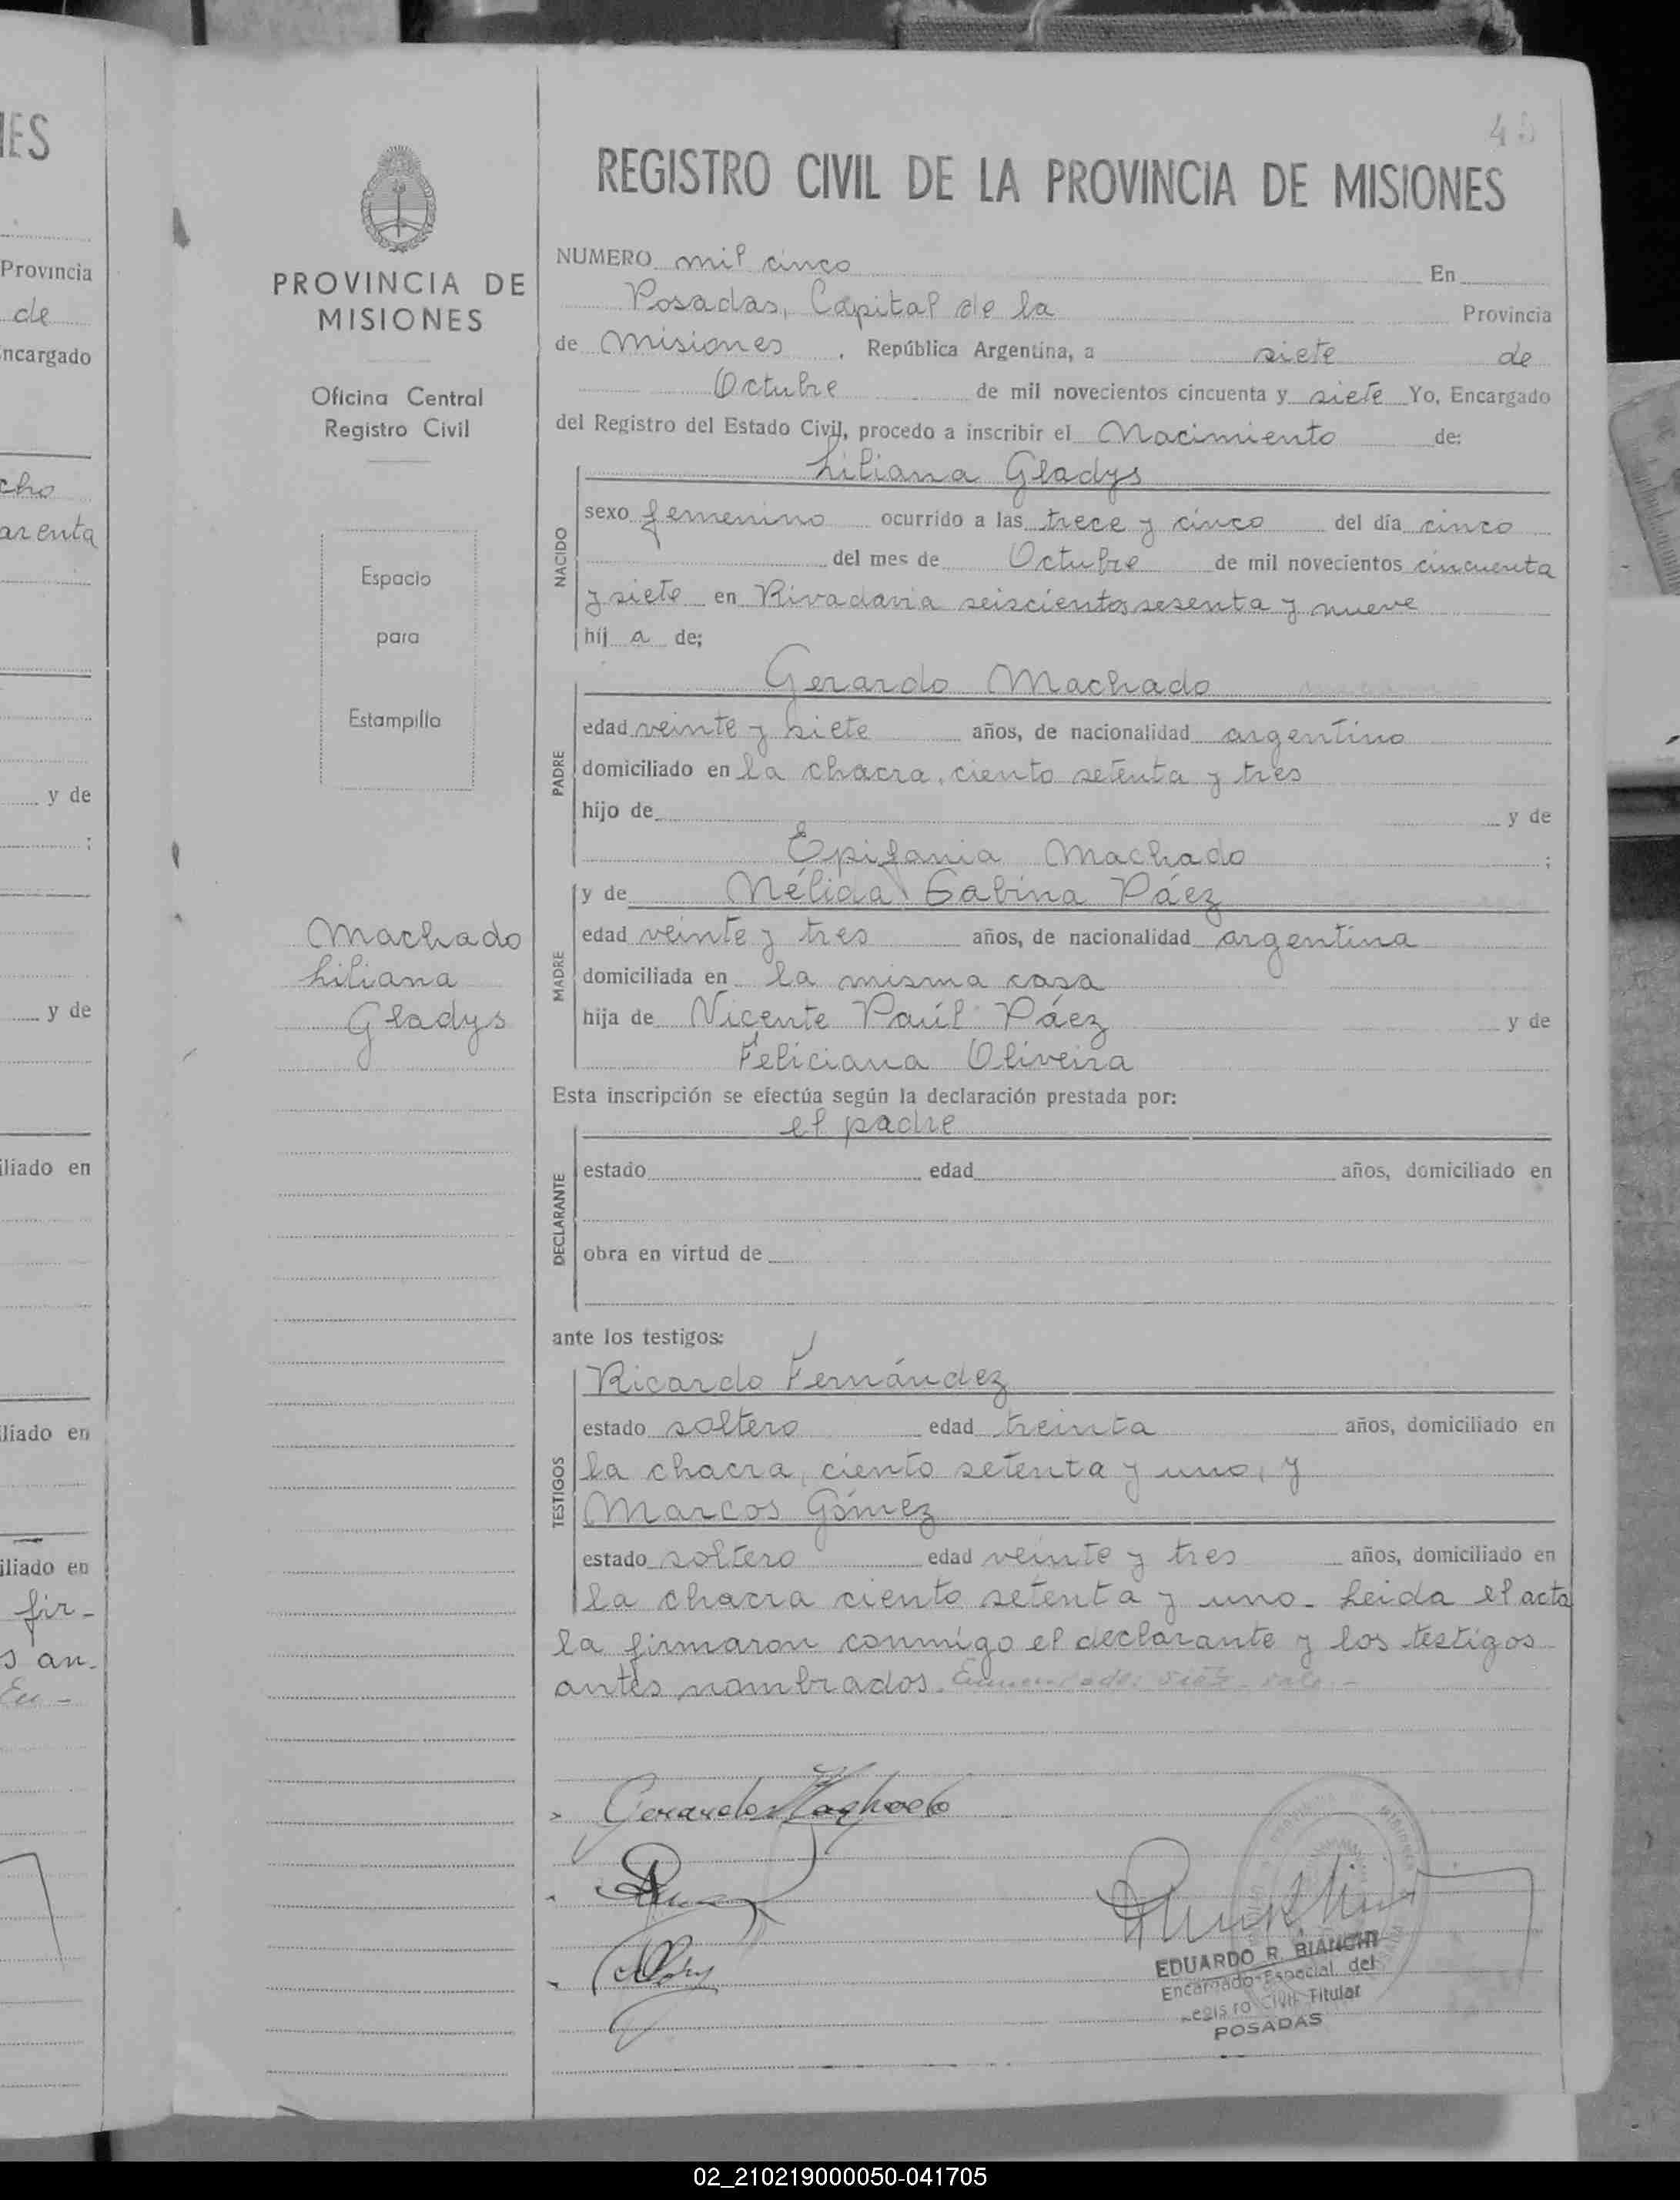 IES
Provincia
de
ncargado
cho
arenta
y de
;
y de
iliado en
iliado en
iliado en
fir-
s an-
Eu -
PROVINCIA DE
MISIONES
Oficina Central
Registro Civil
Espacio
para
Estampilla
Machado
Liliana
Gladys
REGISTRO CIVIL DE LA PROVINCIA DE MISIONES
NUMERO mil cinco En
Posadas, Capital de la Provincia
de Misiones, República Argentina, a siete de
Octubre de mil novecientos cincuenta y siete Yo, Encargado
del Registro del Estado Civil, procedo a inscribir el Nacimiento de:
Liliana Gladys
NACIDO
sexo femenino ocurrido a las trece y cinco del día cinco
del mes de Octubre de mil novecientos cincuenta
y siete en Rivadavia seiscientos sesenta y nueve
hij a de;
Gerardo Machado
PADRE
edad veinte y siete años, de nacionalidad argentino
domiciliado en la chacra, ciento setenta y tres
hijo de y de
Epifania Machado ;
y de Nélida Sabina Páez
MADRE
edad veinte y tres años, de nacionalidad argentina
domiciliada en la misma casa
hija de Vicente Paúl Páez y de
Feliciana Oliveira
Esta inscripción se efectúa según la declaración prestada por:
el padre
DECLARANTE
estado edad años, domiciliado en
obra en virtud de
ante los testigos:
Ricardo Fernández
TESTIGOS
estado soltero edad treinta años, domiciliado en
la chacra, ciento setenta y uno, y
Marcos Gómez
estado soltero edad veinte y tres años, domiciliado en
la chacra ciento setenta y uno - Leida el acta
la firmaron conmigo el declarante y los testigos
antes nombrados. Enmendado: siete - vale. -
Gerardo Machado
EDUARDO R. BIANCHI
Encargado Especial del
Registro Civil Titular
POSADAS
02_210219000050-041705